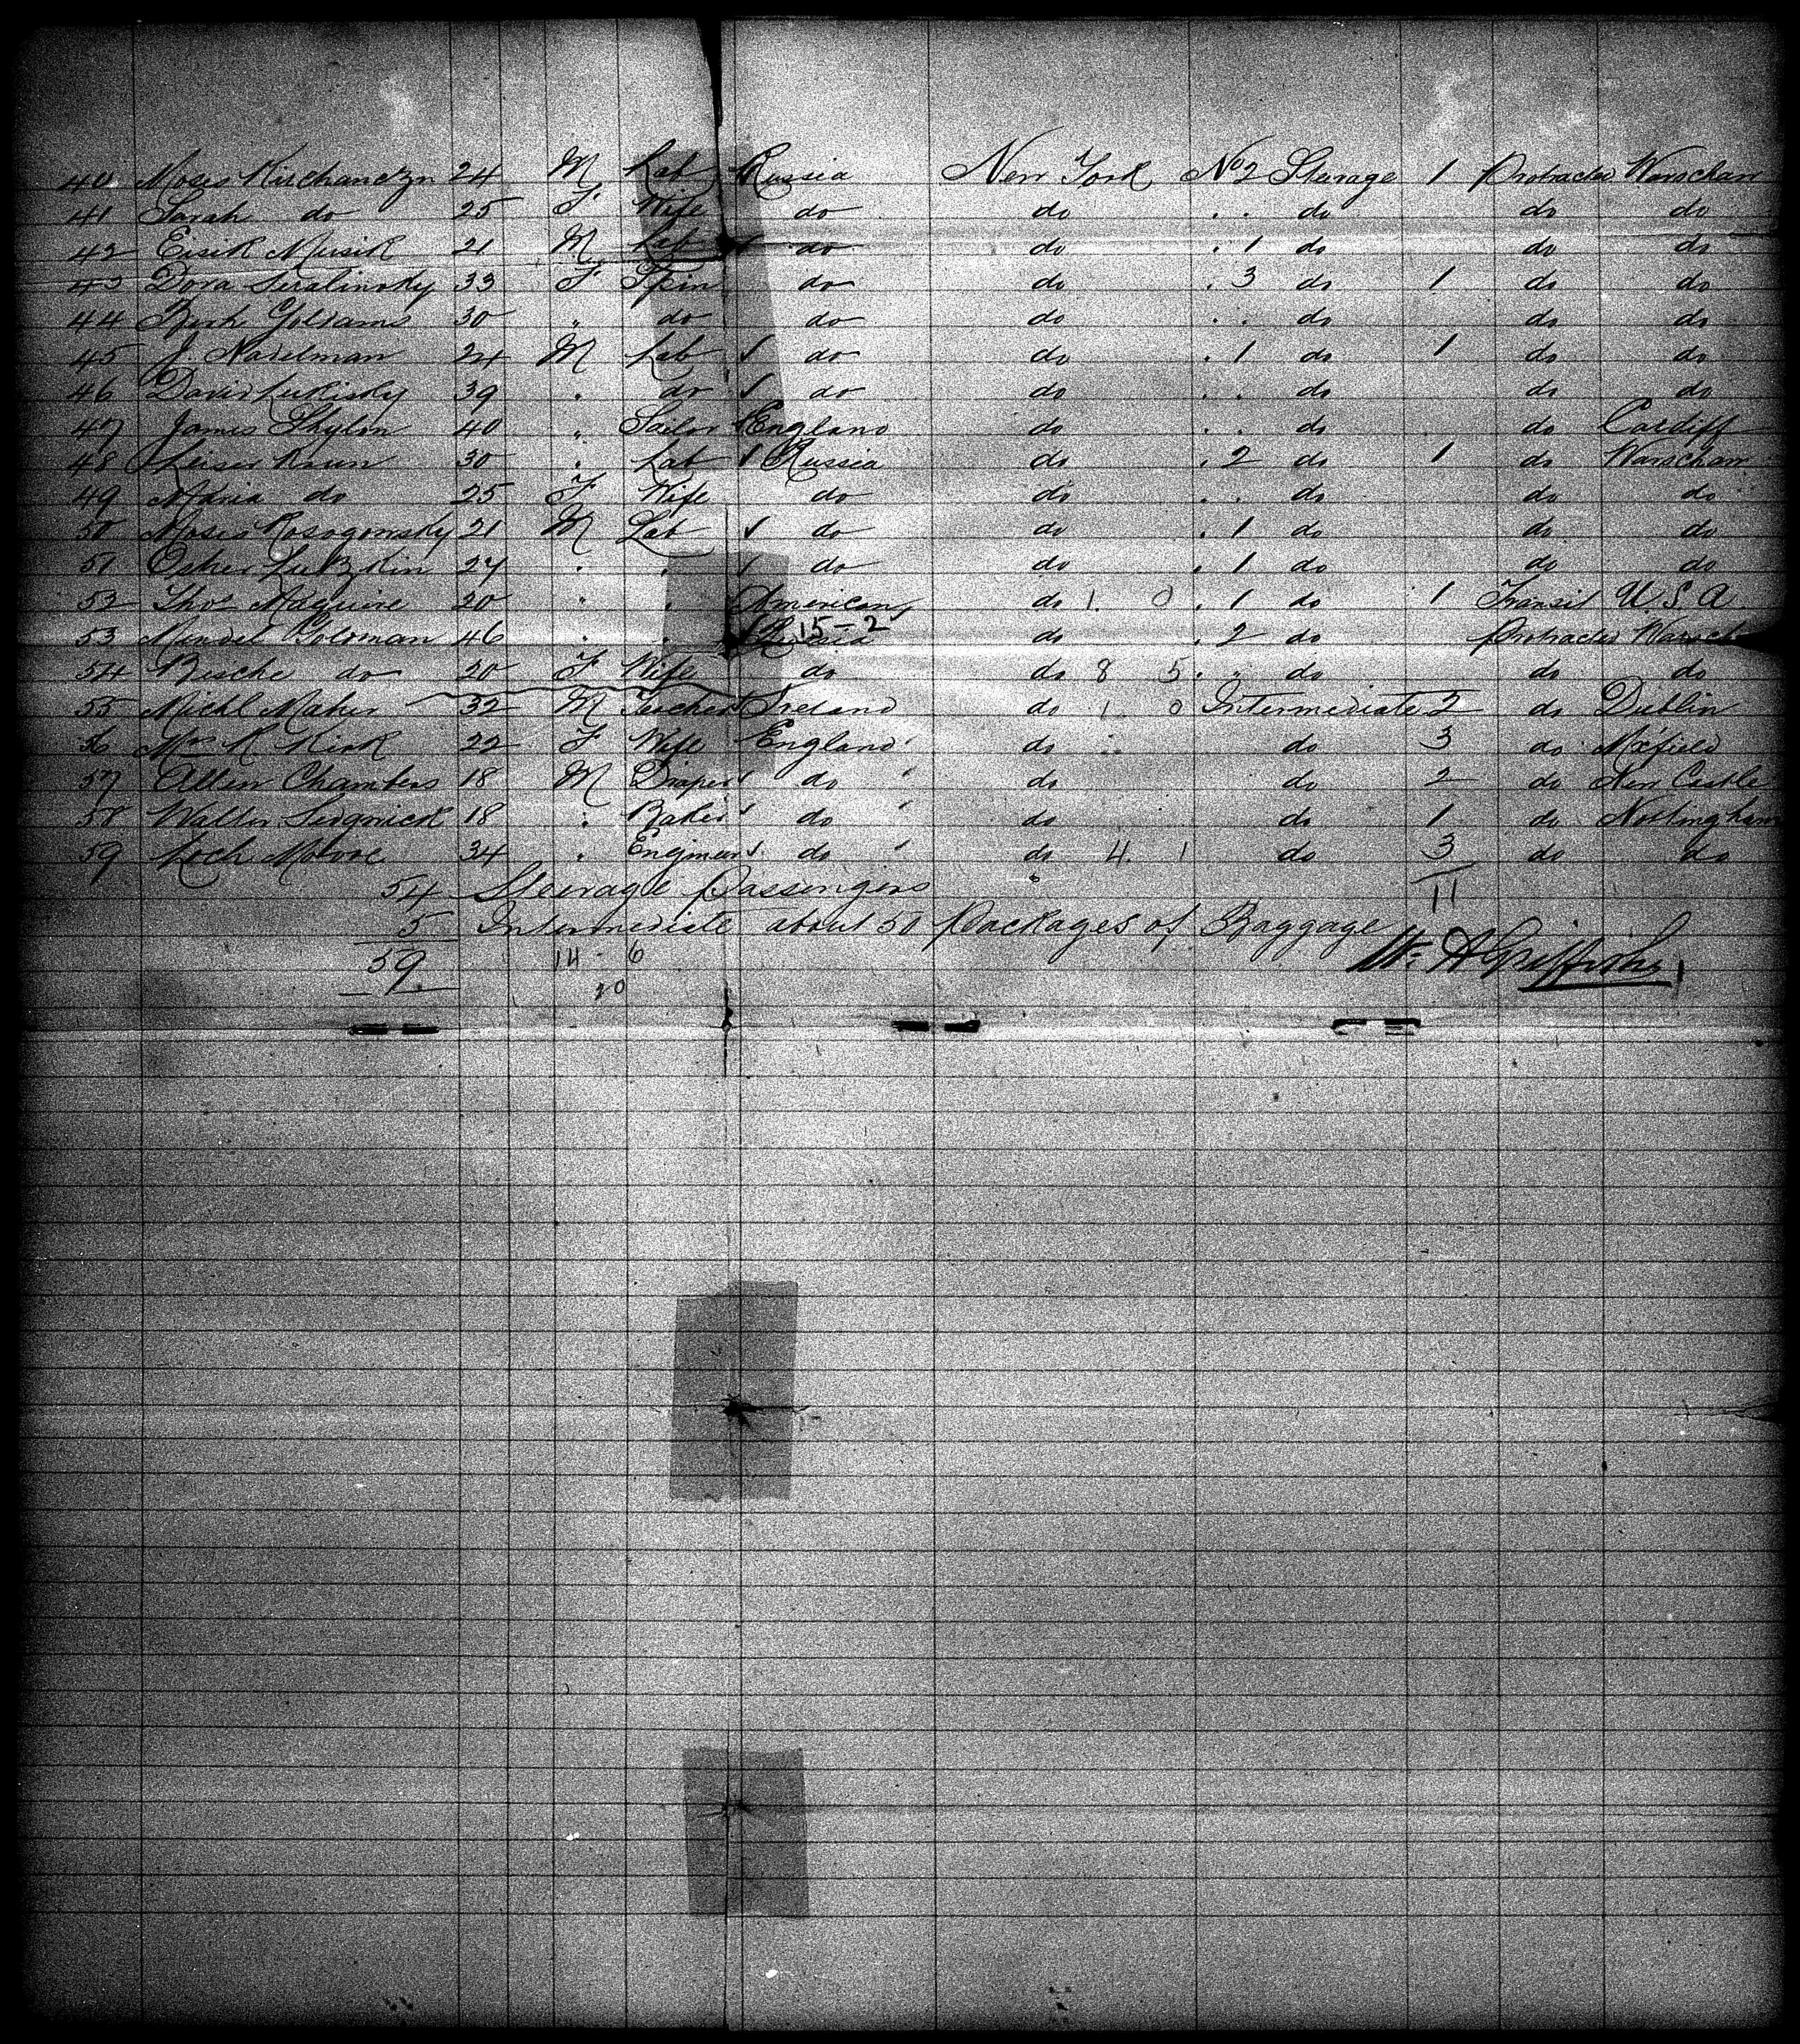 40 Moses Kirchanczyn 24 M Lab Russia New York No 2 Sterage 1 Protracted Warschaw
41 Sarah do 25 F Wife do do " " do do do
42 Eisik Musik 21 M Lab do do " 1 do do do
43 Dora Seralinsky 33 F Spin do do " 3 do 1 do do
44 30 " do do do " " do do do
45 J. Nadelman 24 M Lab do do " 1 do 1 do do
46 David Lukisky 39 " do do do " " do do do
47 James 40 " Sailor England do " " do do Cardiff
48 Leiser Krun 30 " Lab Russia do " 2 do 1 do Warschaw
49 Maria do 25 F Wife do do " " do do do
50 Moses Rosogowsky 21 M Lab do do " 1 do do do
51 Osher 27 " " do do " 1 do do do
52 Thos Maguire 20 " " American do 1 0 " 1 do 1 Transit U.S.A.
15-2
53 Mendel Goldman 46 " " Russia do " 2 do Protracted Warsch
54 Riesche do 20 F Wife do do 8 5 " " do do do
55 Michl Maher 32 M Ireland do 1 0 Intermediate 2 do Dublin
56 Mrs R Kirk 22 F Wife England do do 3 do
57 Allen Chambers 18 M Draper do do do 2 do New Castle
58 Walter Sedgwick 18 " Baker do do do 1 do Nottingham
59 Moore 34 " Engineer do do 4 1 do 3 do do
54 Steerage Passengers 11
5 Intermediate about 50 Packages of Baggage
59 14 - 6 Griffiths
20